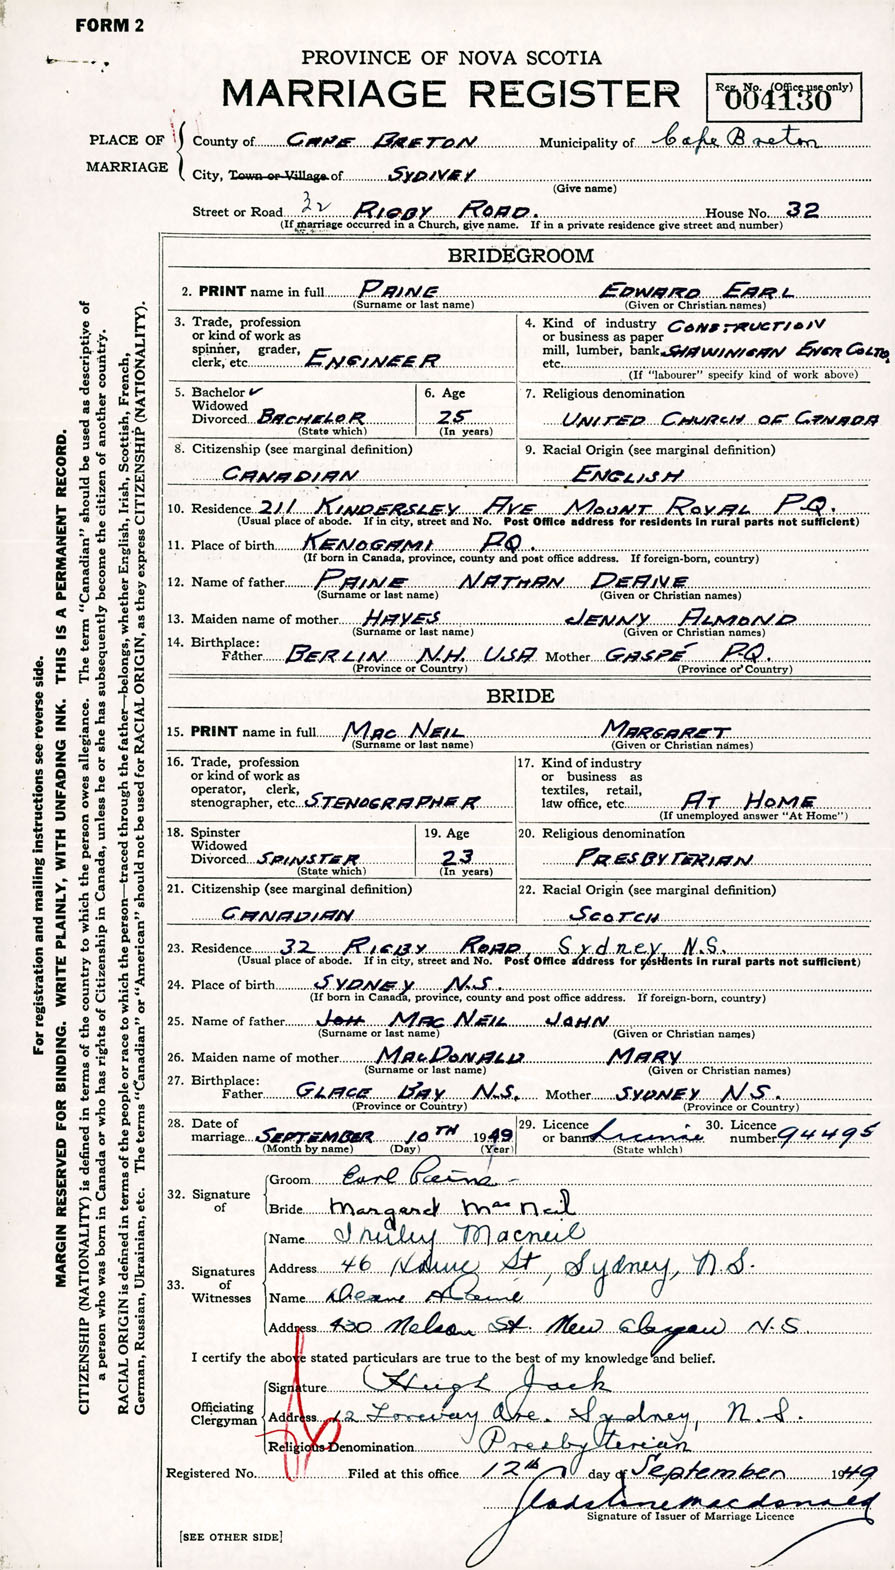 FORM 2
PROVINCE OF NOVA SCOTIA
MARRIAGE REGISTER
Reg. No. (Office use only)
004130
PLACE OF MARRIAGE
County of CAPE BRETON Municipality of Cape Breton
City, Town or Village of SYDNEY
(Give name)
Street or Road 32 RIGBY ROAD. House No. 32
(If marriage occurred in a Church, give name. If in a private residence give street and number)
BRIDEGROOM
2. PRINT name in full PAINE EDWARD EARL
(Surname or last name) (Given or Christian names)
3. Trade, profession
or kind of work as
spinner, grader,
clerk, etc. ENGINEER
4. Kind of industry CONSTRUCTION
or business as paper
mill, lumber, bank SHAWINIGAN ENGR CO LTD.
etc.
(If "labourer" specify kind of work above)
5. Bachelor ✓
Widowed
Divorced BACHELOR
(State which)
6. Age
25
(In years)
7. Religious denomination
UNITED CHURCH OF CANADA
8. Citizenship (see marginal definition)
CANADIAN
9. Racial Origin (see marginal definition)
ENGLISH
10. Residence 211 KINDERSLEY AVE MOUNT ROYAL P.Q.
(Usual place of abode. If in city, street and No. Post Office address for residents in rural parts not sufficient)
11. Place of birth KENOGAMI P.Q.
(If born in Canada, province, county and post office address. If foreign-born, country)
12. Name of father PAINE NATHAN DEANE
(Surname or last name) (Given or Christian names)
13. Maiden name of mother HAYES JENNY ALMOND
(Surname or last name) (Given or Christian names)
14. Birthplace:
Father BERLIN N.H. USA Mother GASPÉ P.Q.
(Province or Country) (Province or Country)
BRIDE
15. PRINT name in full MAC NEIL MARGARET
(Surname or last name) (Given or Christian names)
16. Trade, profession
or kind of work as
operator, clerk,
stenographer, etc. STENOGRAPHER
17. Kind of industry
or business as
textiles, retail,
law office, etc. AT HOME
(If unemployed answer "At Home")
18. Spinster
Widowed
Divorced SPINSTER
(State which)
19. Age
23
(In years)
20. Religious denomination
PRESBYTERIAN
21. Citizenship (see marginal definition)
CANADIAN
22. Racial Origin (see marginal definition)
SCOTCH
23. Residence 32 RIGBY ROAD, Sydney, N.S.
(Usual place of abode. If in city, street and No. Post Office address for residents in rural parts not sufficient)
24. Place of birth SYDNEY N.S.
(If born in Canada, province, county and post office address. If foreign-born, country)
25. Name of father JOH MAC NEIL JOHN
(Surname or last name) (Given or Christian names)
26. Maiden name of mother MACDONALD MARY
(Surname or last name) (Given or Christian names)
27. Birthplace:
Father GLACE BAY N.S. Mother SYDNEY N.S.
(Province or Country) (Province or Country)
28. Date of
marriage SEPTEMBER 10TH 1949
(Month by name) (Day) (Year)
29. Licence
or bann License
(State which)
30. Licence
number 94495
32. Signature of
Groom Earl Paine
Bride Margaret MacNeil
33. Signatures of Witnesses
Name Macneil
Address 46 St, Sydney, N.S.
Name Deane Paine
Address 430 Nelson St. New Glasgow N.S.
I certify the above stated particulars are true to the best of my knowledge and belief.
Officiating Clergyman
Signature Hugh Jack
Address 12 Loreway Ave. Sydney, N.S.
Religious Denomination Presbyterian
Registered No. Filed at this office 12th day of September 1949
Gladstone Macdonald
Signature of Issuer of Marriage Licence
[SEE OTHER SIDE]
For registration and mailing instructions see reverse side.
MARGIN RESERVED FOR BINDING. WRITE PLAINLY, WITH UNFADING INK. THIS IS A PERMANENT RECORD.
CITIZENSHIP (NATIONALITY) is defined in terms of the country to which the person owes allegiance. The term "Canadian" should be used as descriptive of
a person who was born in Canada or who has rights of Citizenship in Canada, unless he or she has subsequently become the citizen of another country.
RACIAL ORIGIN is defined in terms of the people or race to which the person—traced through the father—belongs, whether English, Irish, Scottish, French,
German, Russian, Ukrainian, etc. The terms "Canadian" or "American" should not be used for RACIAL ORIGIN, as they express CITIZENSHIP (NATIONALITY).